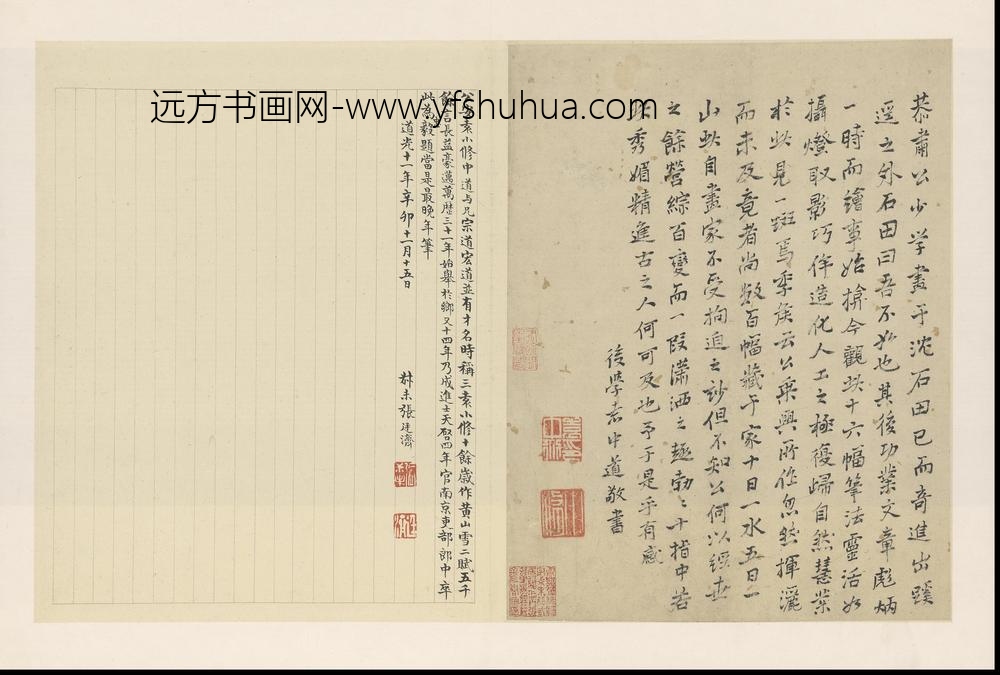 恭肅公少学畫于沈石田已而奇進出蹊
逕之外石田曰吾不如也其後功業文章彪炳
一時而繪事始揜今觀此十六幅筆法靈活如
攝燈取影巧侔造化人工之極復歸自然慧業
於此見一斑焉季侯云公乘興所作忽然揮灑
而未及竟者尚數百幅藏于家十日一水五日一
山此自畫家不受拘迫之妙但不知公何以經世
之餘營綜百變而一段瀟洒之趣勃〻十指中若
秀媚精進古之人何可及也予于是乎有感
後學袁中道敬書
袁小修中道与兄宗道宏道並有才名時稱三袁小修十餘歲作黄山雪二賦五千
餘言長益豪邁萬歷三十一年始舉於鄉又十四年乃成進士天啓四年官南京吏部郎中卒
此爲毅題當是最晚年筆
道光十一年辛卯十一月十五日
叔未張廷濟
远方书画网-www.yfshuhua.com